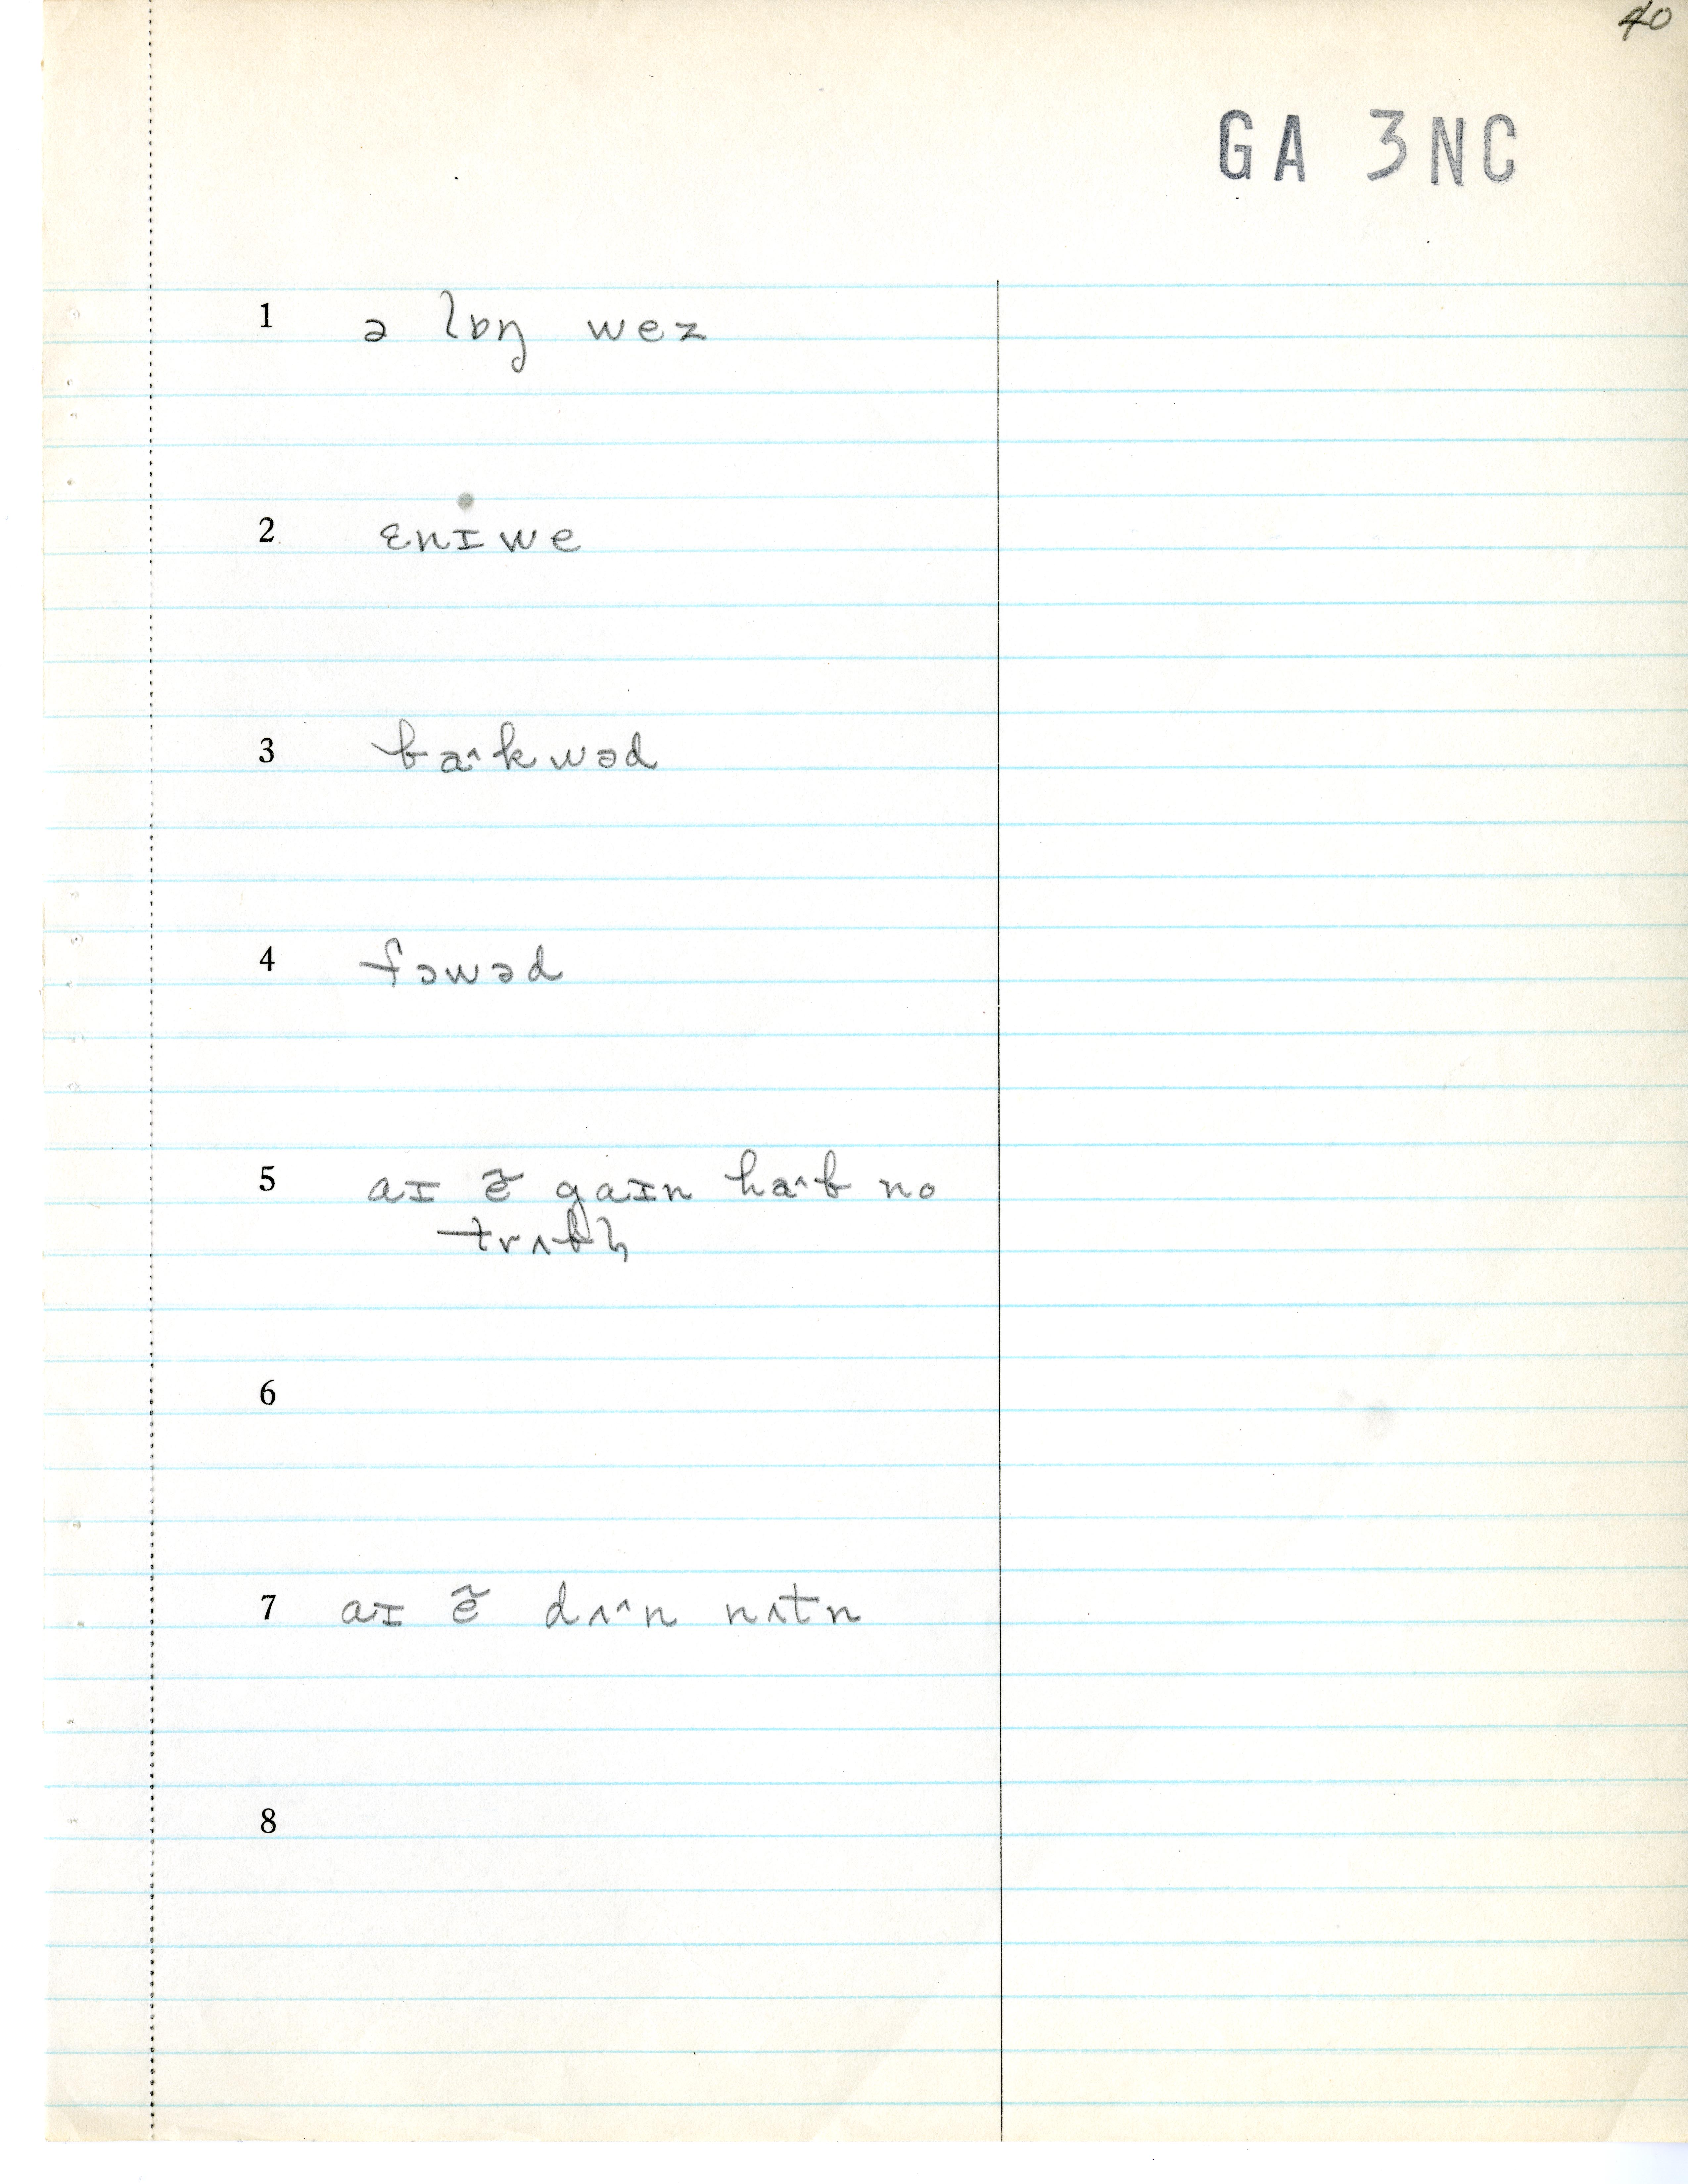 40
GA 3NC
1 ə lɒŋ wez
2 ɛnɪwe
3 ba˄kwəd
4 fɔwəd
5 aɪ ẽ gaɪn ha˄b no
trʌbl̩
6
7 aɪ ẽ dʌ˄n nʌtn
8